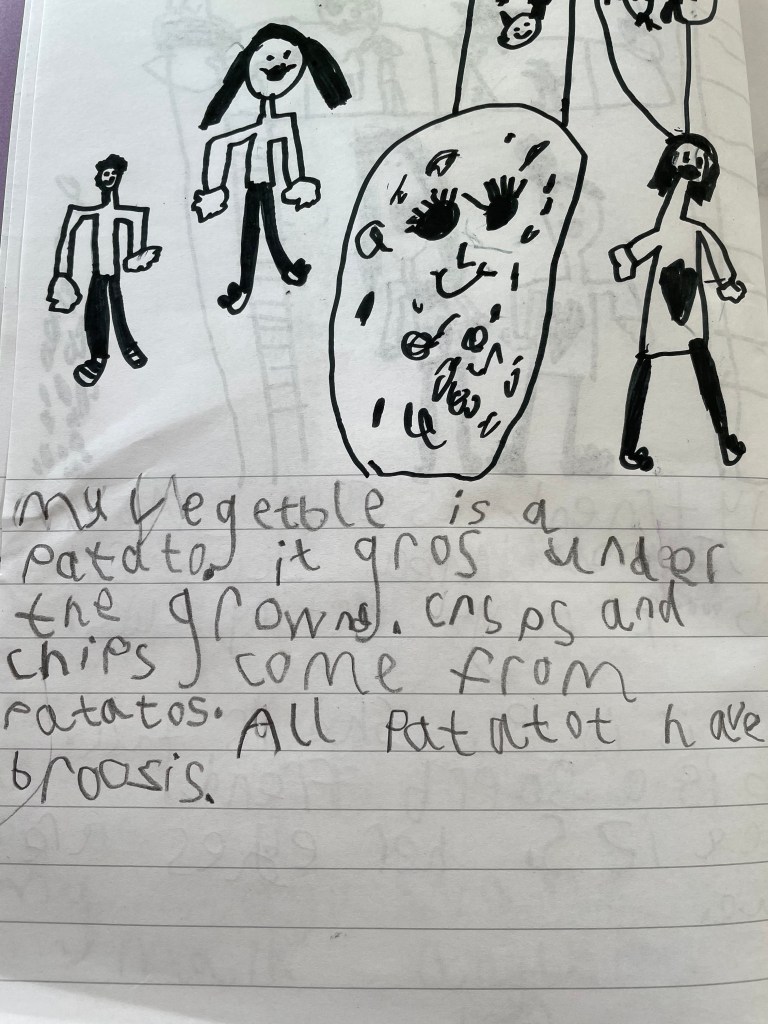 my vegetble is a
patato. it gros under
the grownd. crisps and
chips come from
patatos. All patatot have
broosis.